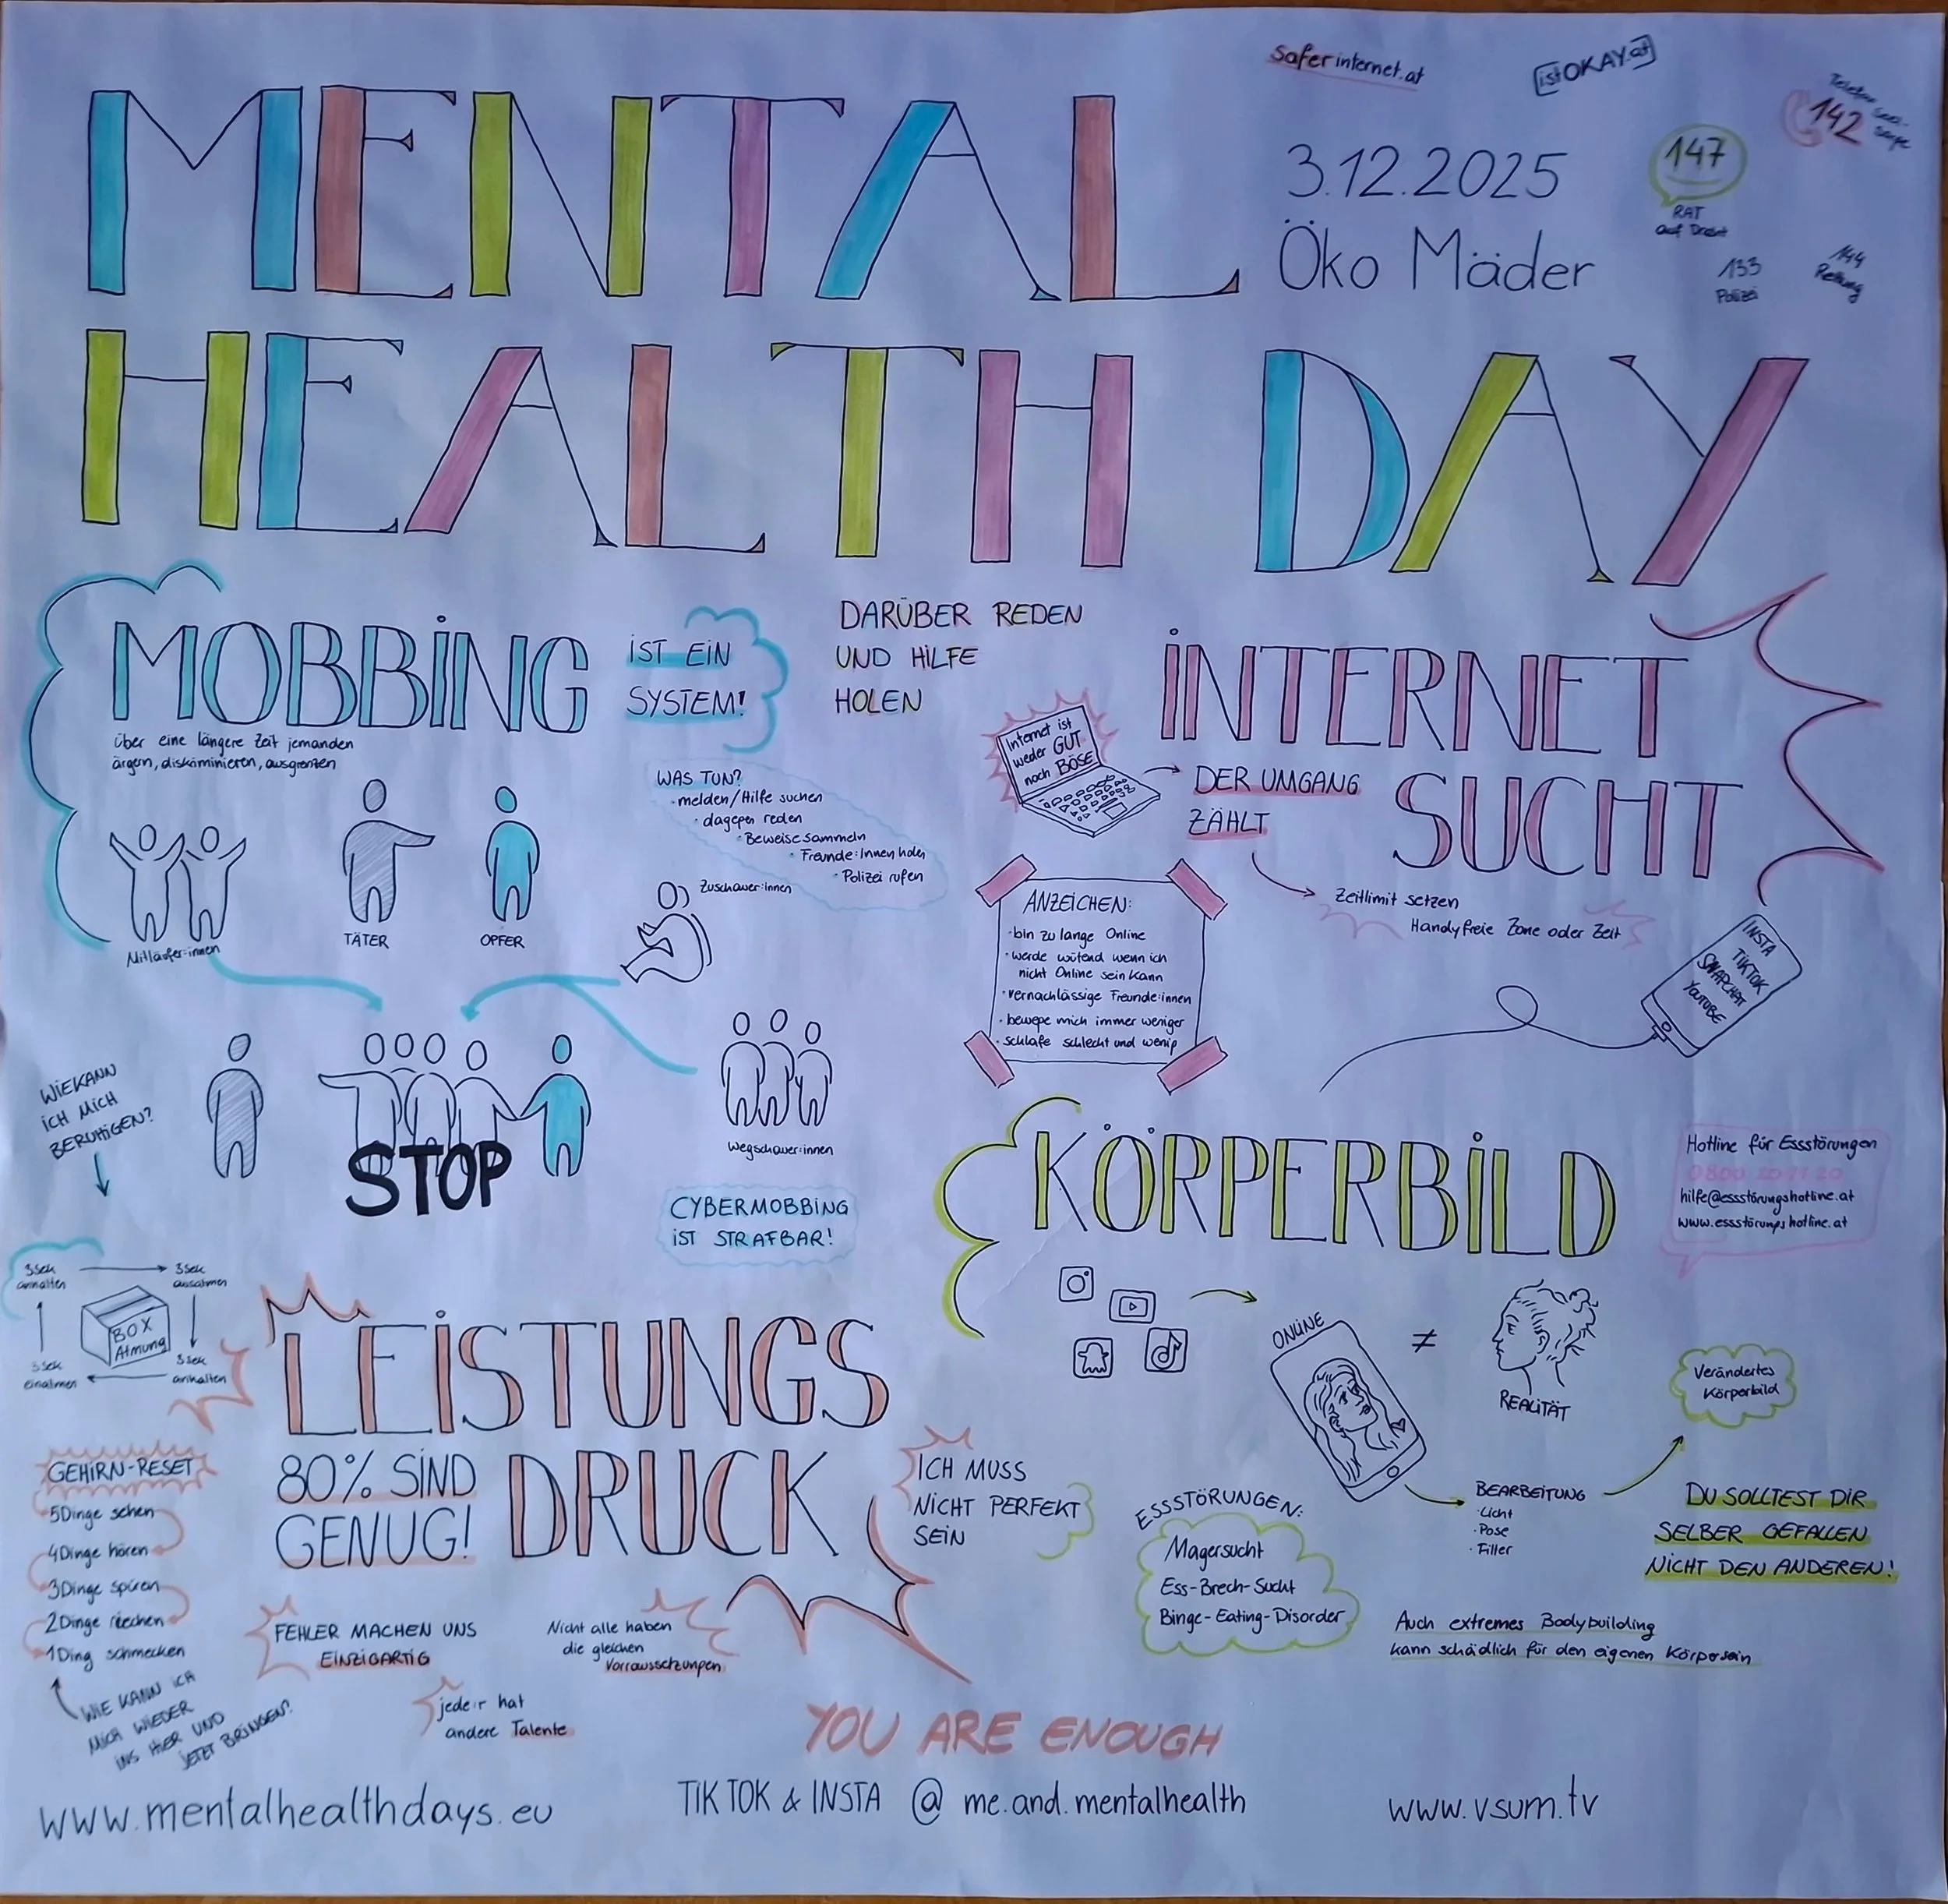 MENTAL
HEALTH DAY
Saferinternet.at
istOKAY.at
3.12.2025
Öko Mäder
147
RAT
auf Draht
142
133
Polizei
144
Rettung
MOBBING
IST EIN
SYSTEM!
über eine längere Zeit jemanden
ärgern, diskriminieren, ausgrenzen
DARÜBER REDEN
UND HILFE
HOLEN
WAS TUN?
· melden/Hilfe suchen
· dagegen reden
· Beweise sammeln
· Freunde:Innen holen
· Polizei rufen
Mitläufer:innen
TÄTER
OPFER
Zuschauer:innen
Wegschauer:innen
STOP
CYBERMOBBING
IST STRAFBAR!
INTERNET
SUCHT
Internet ist
weder GUT
noch BÖSE
DER UMGANG
ZÄHLT
Zeitlimit setzen
Handyfreie Zone oder Zeit
ANZEICHEN:
· bin zu lange Online
· werde wütend wenn ich
nicht Online sein kann
· vernachlässige Freunde:innen
· bewege mich immer weniger
· schlafe schlecht und wenig
INSTA
TIKTOK
SNAPCHAT
YOUTUBE
WIE KANN
ICH MICH
BERUHIGEN?
3Sek
anhalten
3Sek
ausatmen
BOX
Atmung
3Sek
einatmen
3Sek
anhalten
KÖRPERBILD
Hotline für Essstörungen
0800 20 11 20
hilfe@essstörungshotline.at
www.essstörungshotline.at
ONLINE
≠
REALITÄT
Verändertes
Körperbild
BEARBEITUNG
· Licht
· Pose
· Filter
DU SOLLTEST DIR
SELBER GEFALLEN
NICHT DEN ANDEREN!
ESSSTÖRUNGEN:
Magersucht
Ess-Brech-Sucht
Binge-Eating-Disorder
Auch extremes Bodybuilding
kann schädlich für den eigenen Körper sein
LEISTUNGS
DRUCK
80% SIND
GENUG!
ICH MUSS
NICHT PERFEKT
SEIN
GEHIRN-RESET
5 Dinge sehen
4 Dinge hören
3 Dinge spüren
2 Dinge riechen
1 Ding schmecken
WIE KANN ICH
MICH WIEDER
INS HIER UND
JETZT BRINGEN?
FEHLER MACHEN UNS
EINZIGARTIG
Nicht alle haben
die gleichen
Vorraussetzungen
jede:r hat
andere Talente
YOU ARE ENOUGH
www.mentalhealthdays.eu
TIKTOK & INSTA @ me.and.mentalhealth
www.vsum.tv